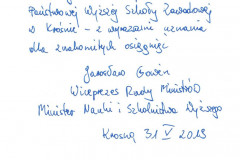 Państwowej Wyższej Szkoły Zawodowej
w Krośnie – z wyrazami uznania
dla znakomitych osiągnięć
Jarosław Gowin
Wiceprezes Rady Ministrów
Minister Nauki i Szkolnictwa Wyższego
Krosno, 31 V 2019